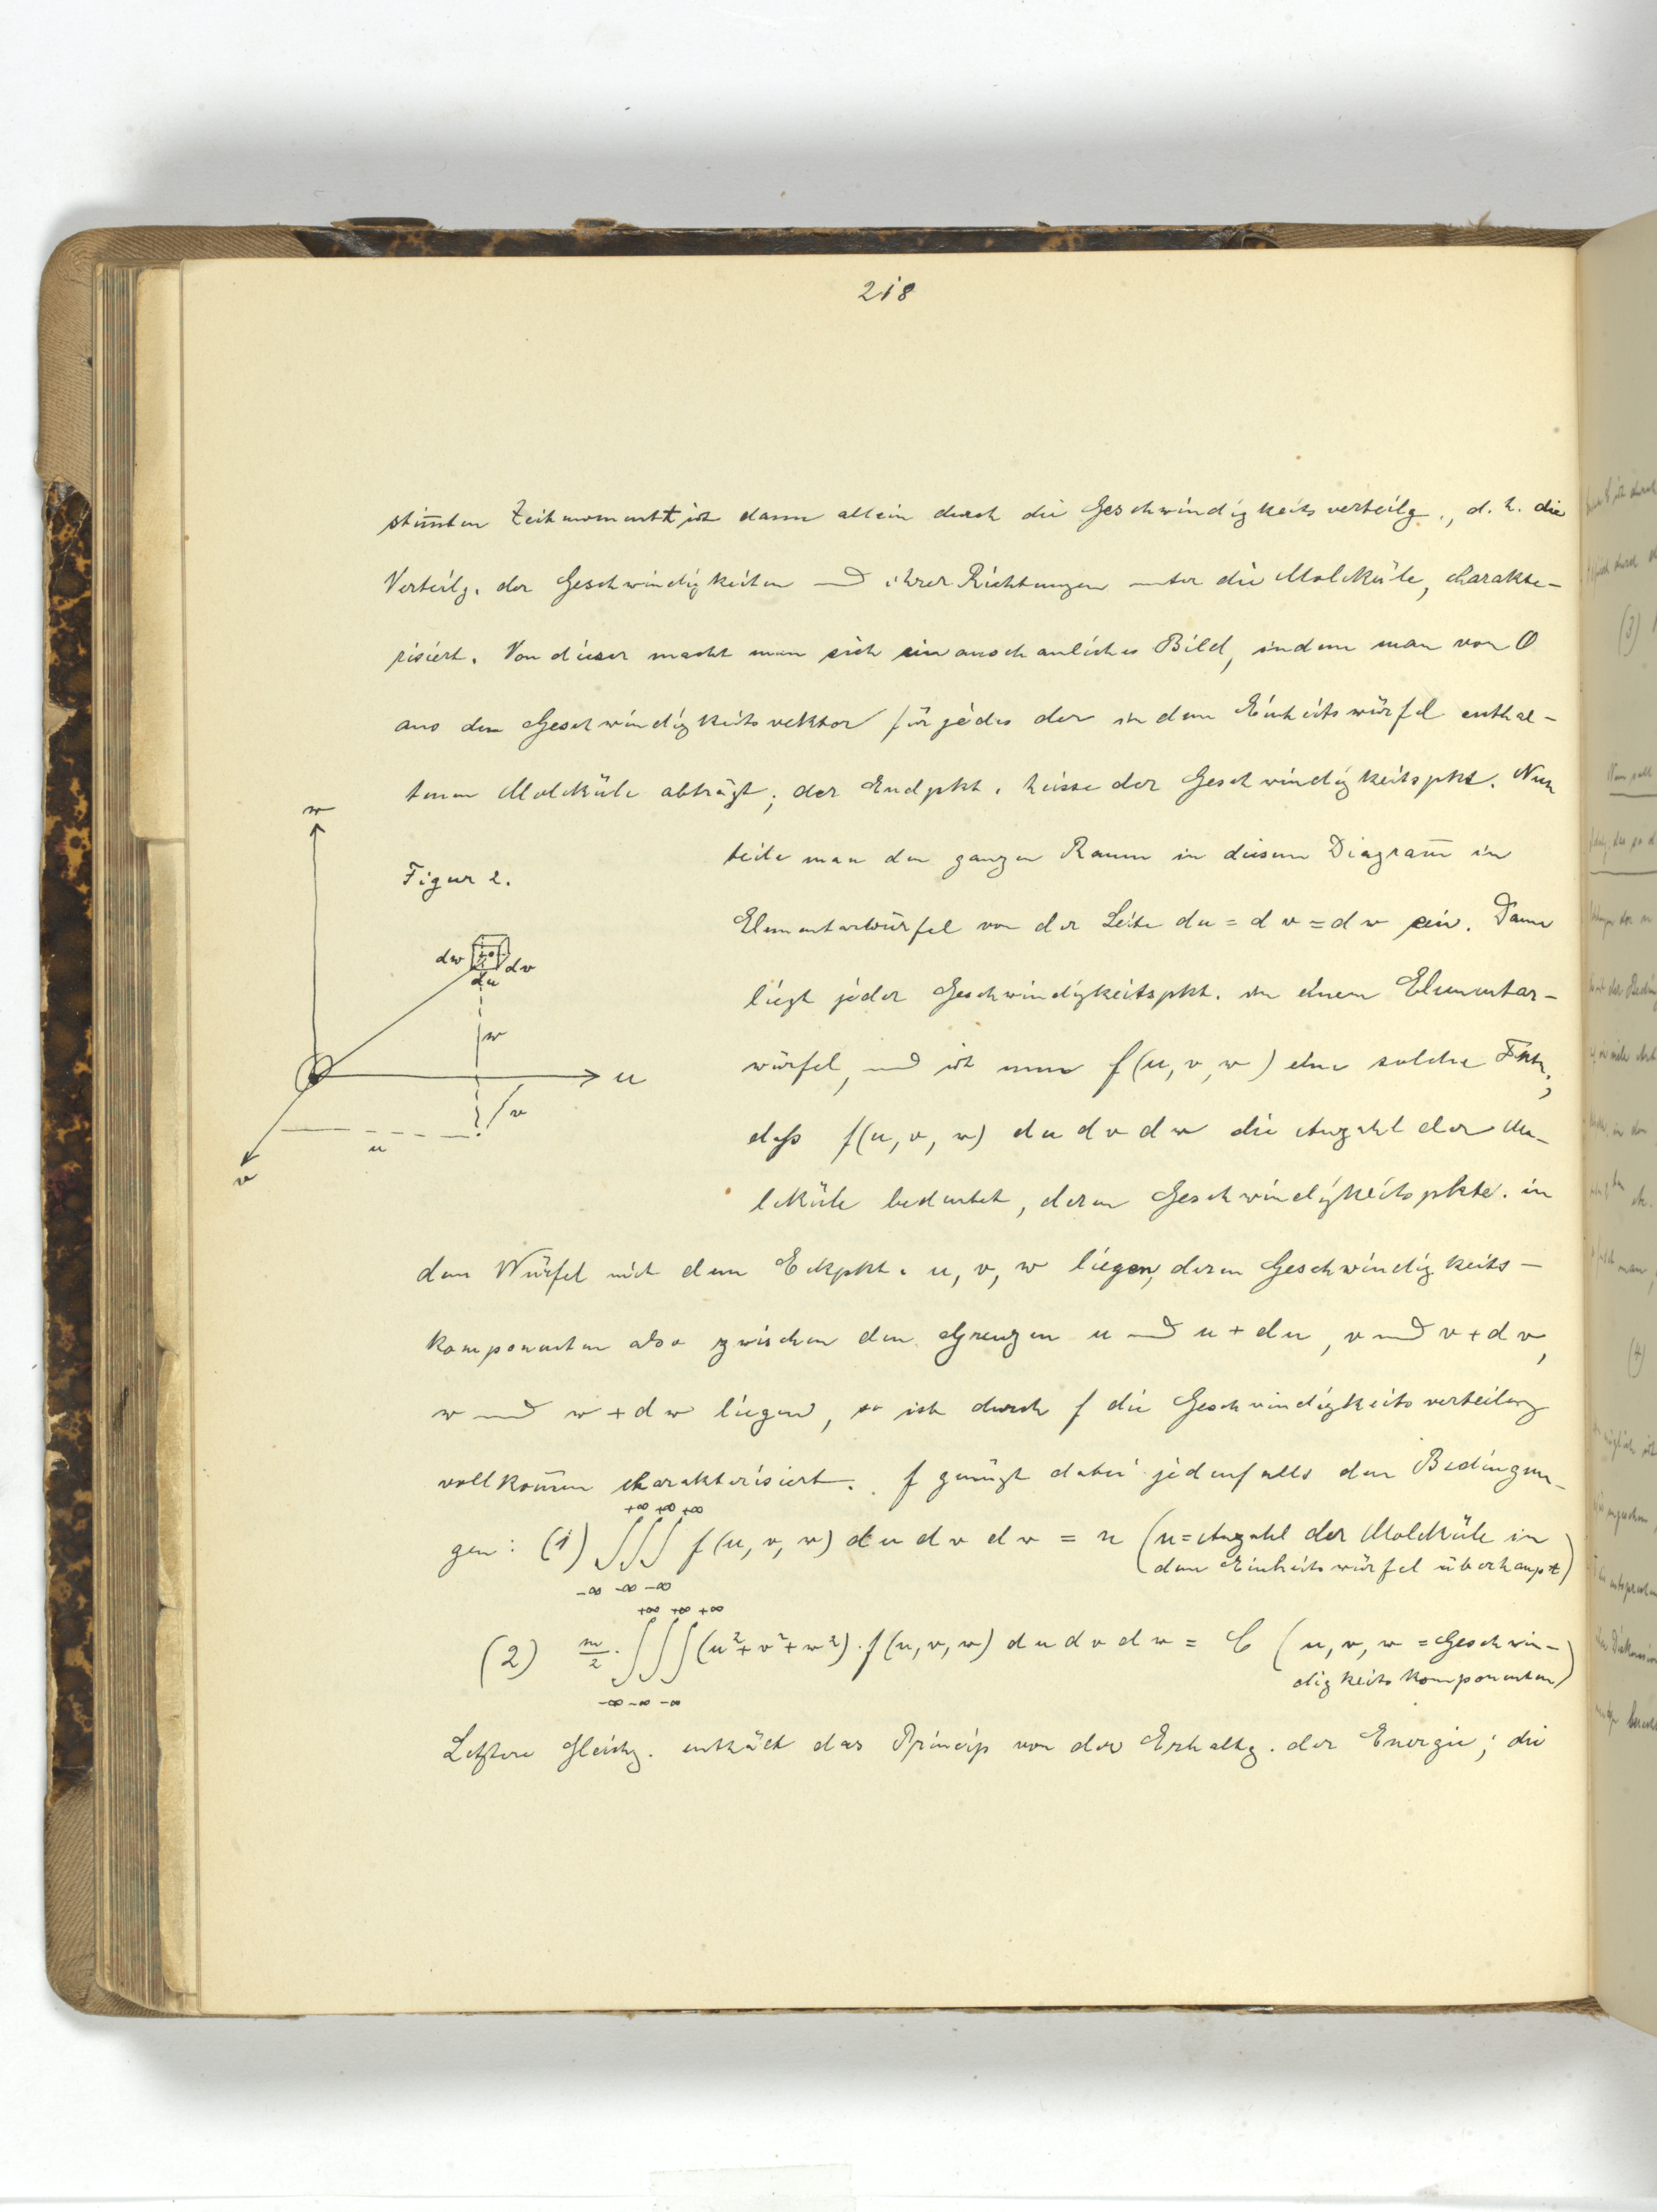 218
stim̅ten Zeitmoment ist dann allein durch die Geschwindigkeitsverteilg., d. h. die
Verteilg. der Geschwindigkeiten und ihrer Richtungen unter die Moleküle, charakte-
risiert. Von dieser macht man sich ein anschauliches Bild, indem man von O
aus den Geschwindigkeitsvektor für jedes der in dem Einheitswürfel enthal-
tenen Moleküle abträgt; der Endpkt. heisse der Geschwindigkeitspkt. Nun
teile man den ganzen Raum in diesem Diagram̅ in
Elementarwürfel von der Seite du = dv = dw ein. Dann
liegt jeder Geschwindigkeitspkt. in einem Elementar-
würfel, und ist nun f(u, v, w) eine solche Fktn.,
daß f(u, v, w) du dv dw die Anzahl der Mo-
leküle bedeutet, deren Geschwindigkeitspkte. in
w
Figur 2.
dw du dv
w
u
v
u
v
dem Würfel mit dem Eckpkt. u, v, w liegen, deren Geschwindigkeits-
komponenten also zwischen den Grenzen u und u + du, v und v + dv,
w und w + dw liegen, so ist durch f die Geschwindigkeitsverteilung
vollkom̅en charakterisiert. f genügt dabei jedenfalls den Bedingun-
gen: (1) ∫∫∫ f(u, v, w) du dv dw = n (n = Anzahl der Moleküle in
dem Einheitswürfel überhaupt)
+∞ +∞ +∞
-∞ -∞ -∞
+∞ +∞ +∞
(2) m/2 · ∫∫∫ (u² + v² + w²) · f(u, v, w) du dv dw = C (u, v, w = Geschwin-
digkeitskomponenten)
-∞ -∞ -∞
Letztere Gleichg. enthält das Princip von der Erhaltg. der Energie; die
(3)
(4)